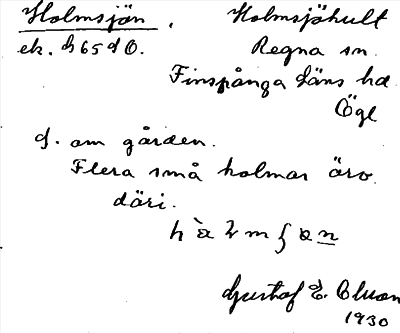 Holmsjön. Holmsjöhult
ek. h 65 d Ö. Regna sn.
Finspånga läns hd
Ögl
d. om gården.
Flera små holmar äro
däri.
Gustaf E. Olson
1930